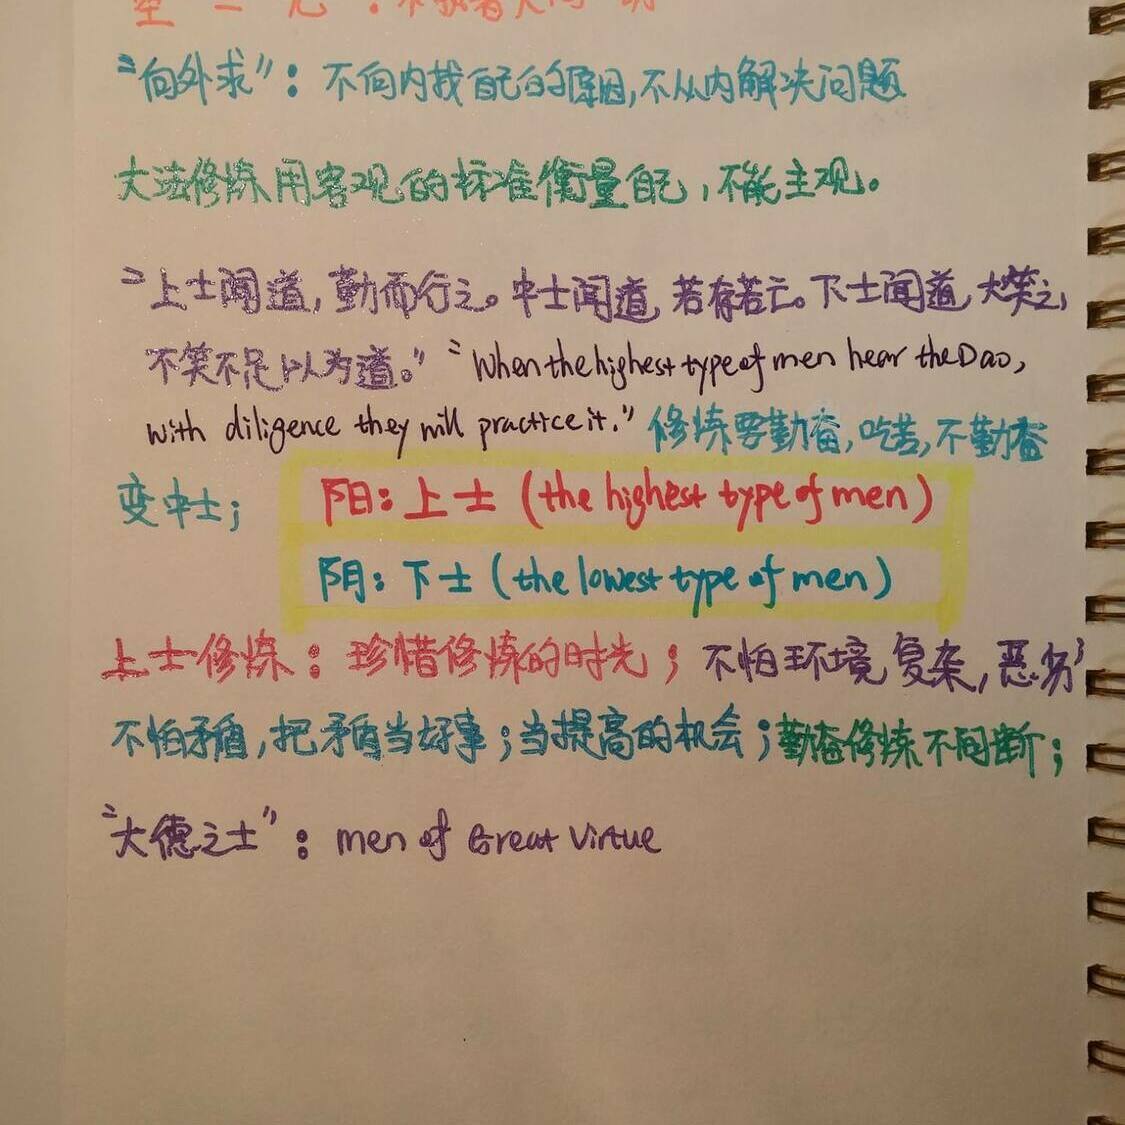 "向外求"：不向内找自己的原因,不从内解决问题
大法修炼用客观的标准衡量自己，不能主观。
"上士闻道，勤而行之。中士闻道，若存若亡。下士闻道，大笑之，
不笑不足以为道。" "When the highest type of men hear the Dao,
with diligence they will practice it." 修炼要勤奋,吃苦,不勤奋
变中士；
阳：上士 (the highest type of men)
阴：下士 (the lowest type of men)
上士修炼：珍惜修炼的时光；不怕环境复杂，恶劣；
不怕矛盾，把矛盾当好事；当提高的机会；勤奋修炼不间断；
"大德之士"：men of Great Virtue